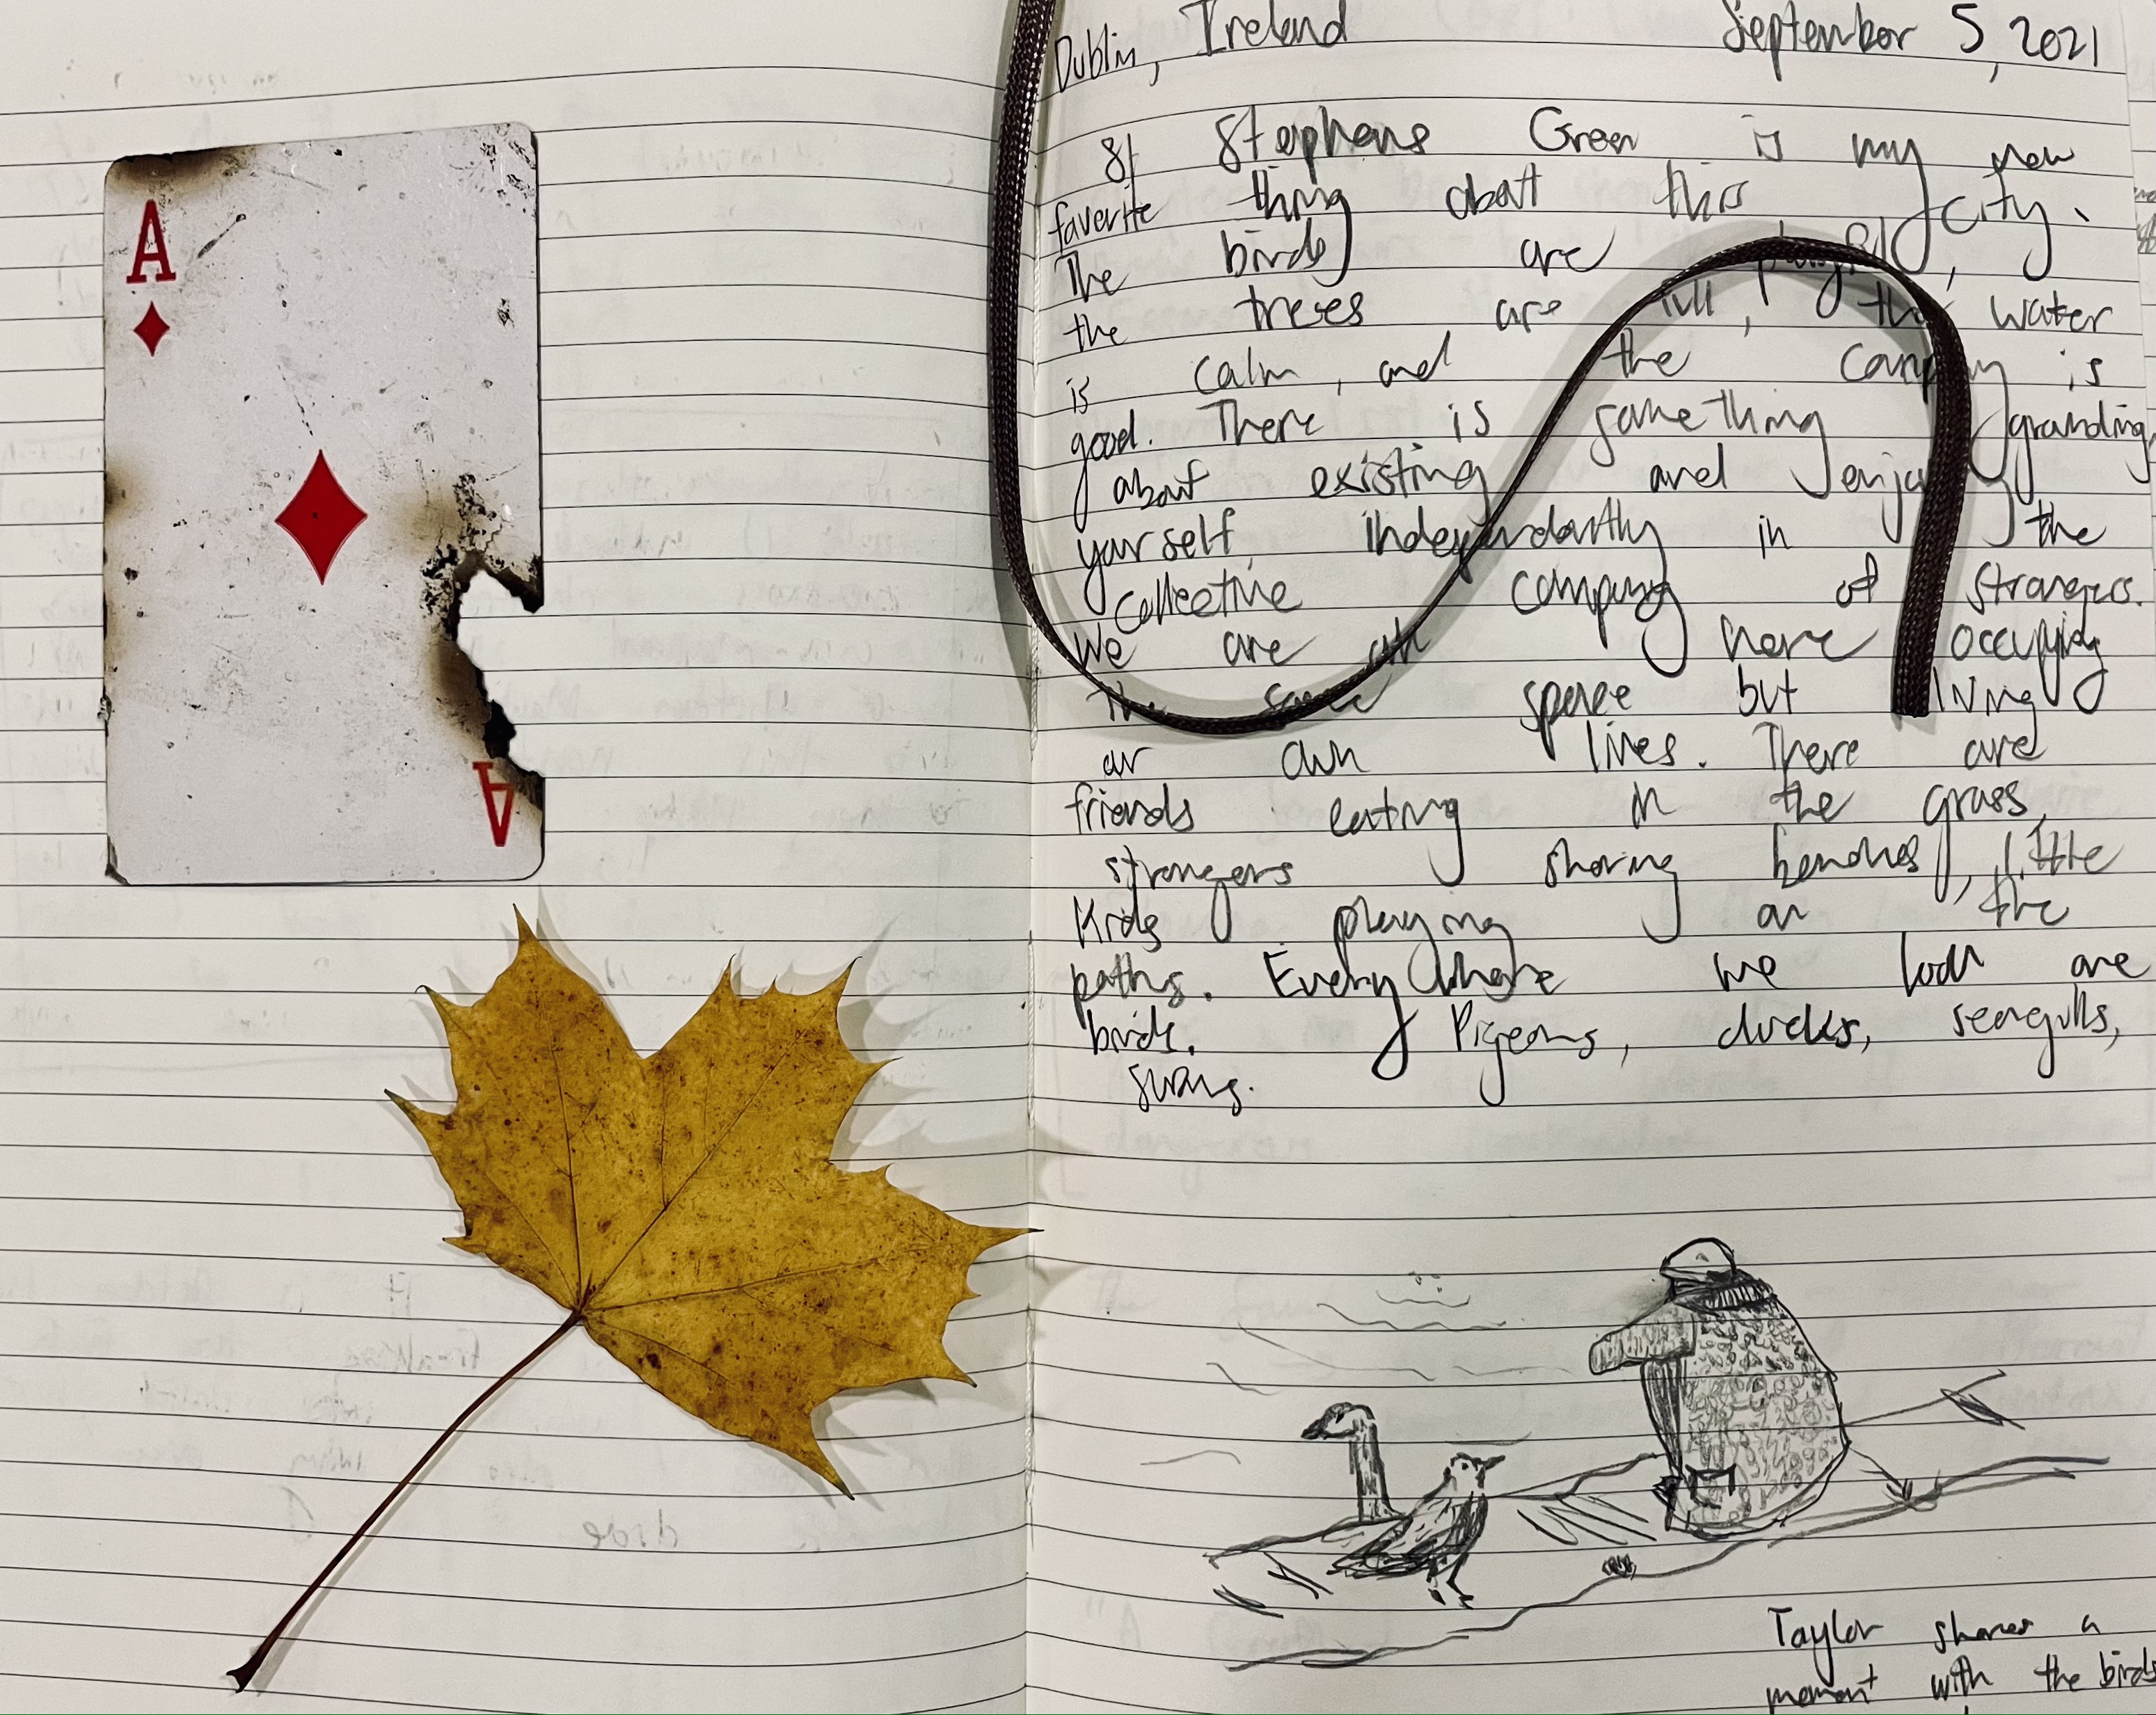 A
A
Dublin, Ireland September 5, 2021
St Stephens Green is my new
favorite thing about this city.
The birds are playful,
the trees are tall, the water
is calm, and the company is
good. There is something grounding
about existing and enjoying
yourself independantly in the
collective company of strangers.
We are all here occupying
the same space but living
our own lives. There are
friends eating in the grass,
strangers sharing benches, little
kids playing on the
paths. Everywhere we look are
birds. Pigeons, ducks, seagulls,
swans.
Taylor shares a
moment with the birds